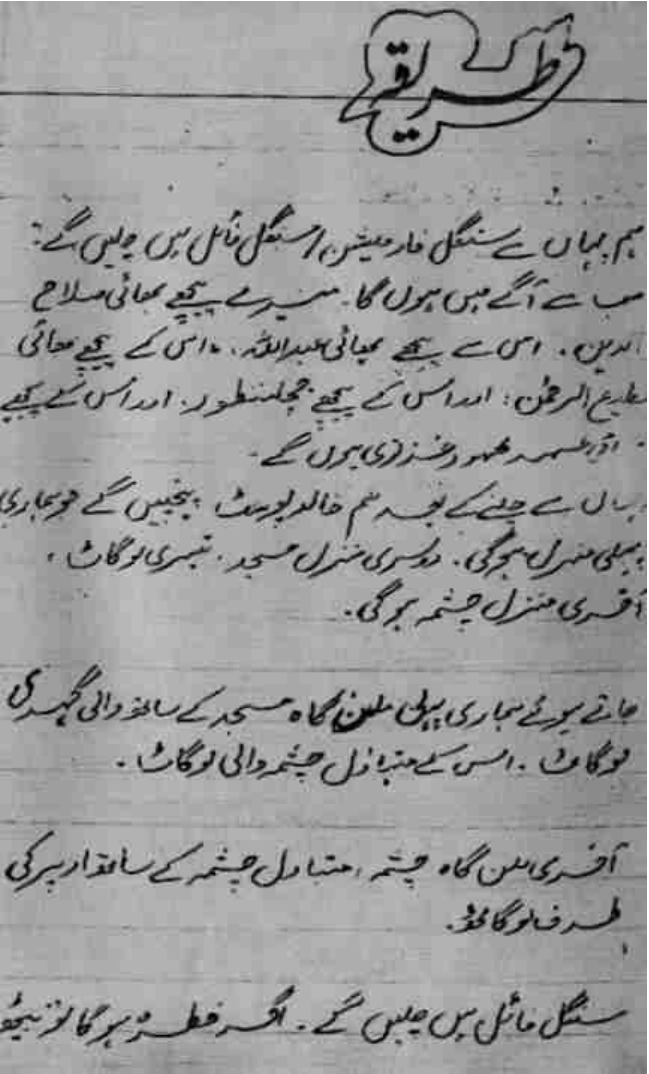 طریقے
ہم یہاں سے سنگل فارمیشن / سنگل فائل میں چلیں گے:
سب سے آگے میں ہوں گا. میرے پیچھے بھائی صلاح
الدین. اس سے پیچھے بھائی عبداللہ. اس کے پیچھے بھائی
مطیع الرحمٰن: اور اس کے پیچھے منظور. اور اس کے پیچھے
محمود غزنوی ہوں گے.
یہاں سے چلنے کے بعد ہم خالد پوسٹ پہنچیں گے جو ہماری
پہلی منزل ہوگی. دوسری منزل مسجد. تیسری لوگاٹ.
آخری منزل چشمہ ہوگی.
جاتے ہوئے ہماری پہلی ملن گاہ مسجد کے ساتھ والی گہری
لوگاٹ. اس کے متبادل چشمہ والی لوگاٹ.
آخری ملن گاہ چشمہ، متبادل چشمہ کے ساتھ اوپر کی
طرف لوگاٹ.
سنگل فائل میں چلیں گے. اگر خطرہ ہوگا تو